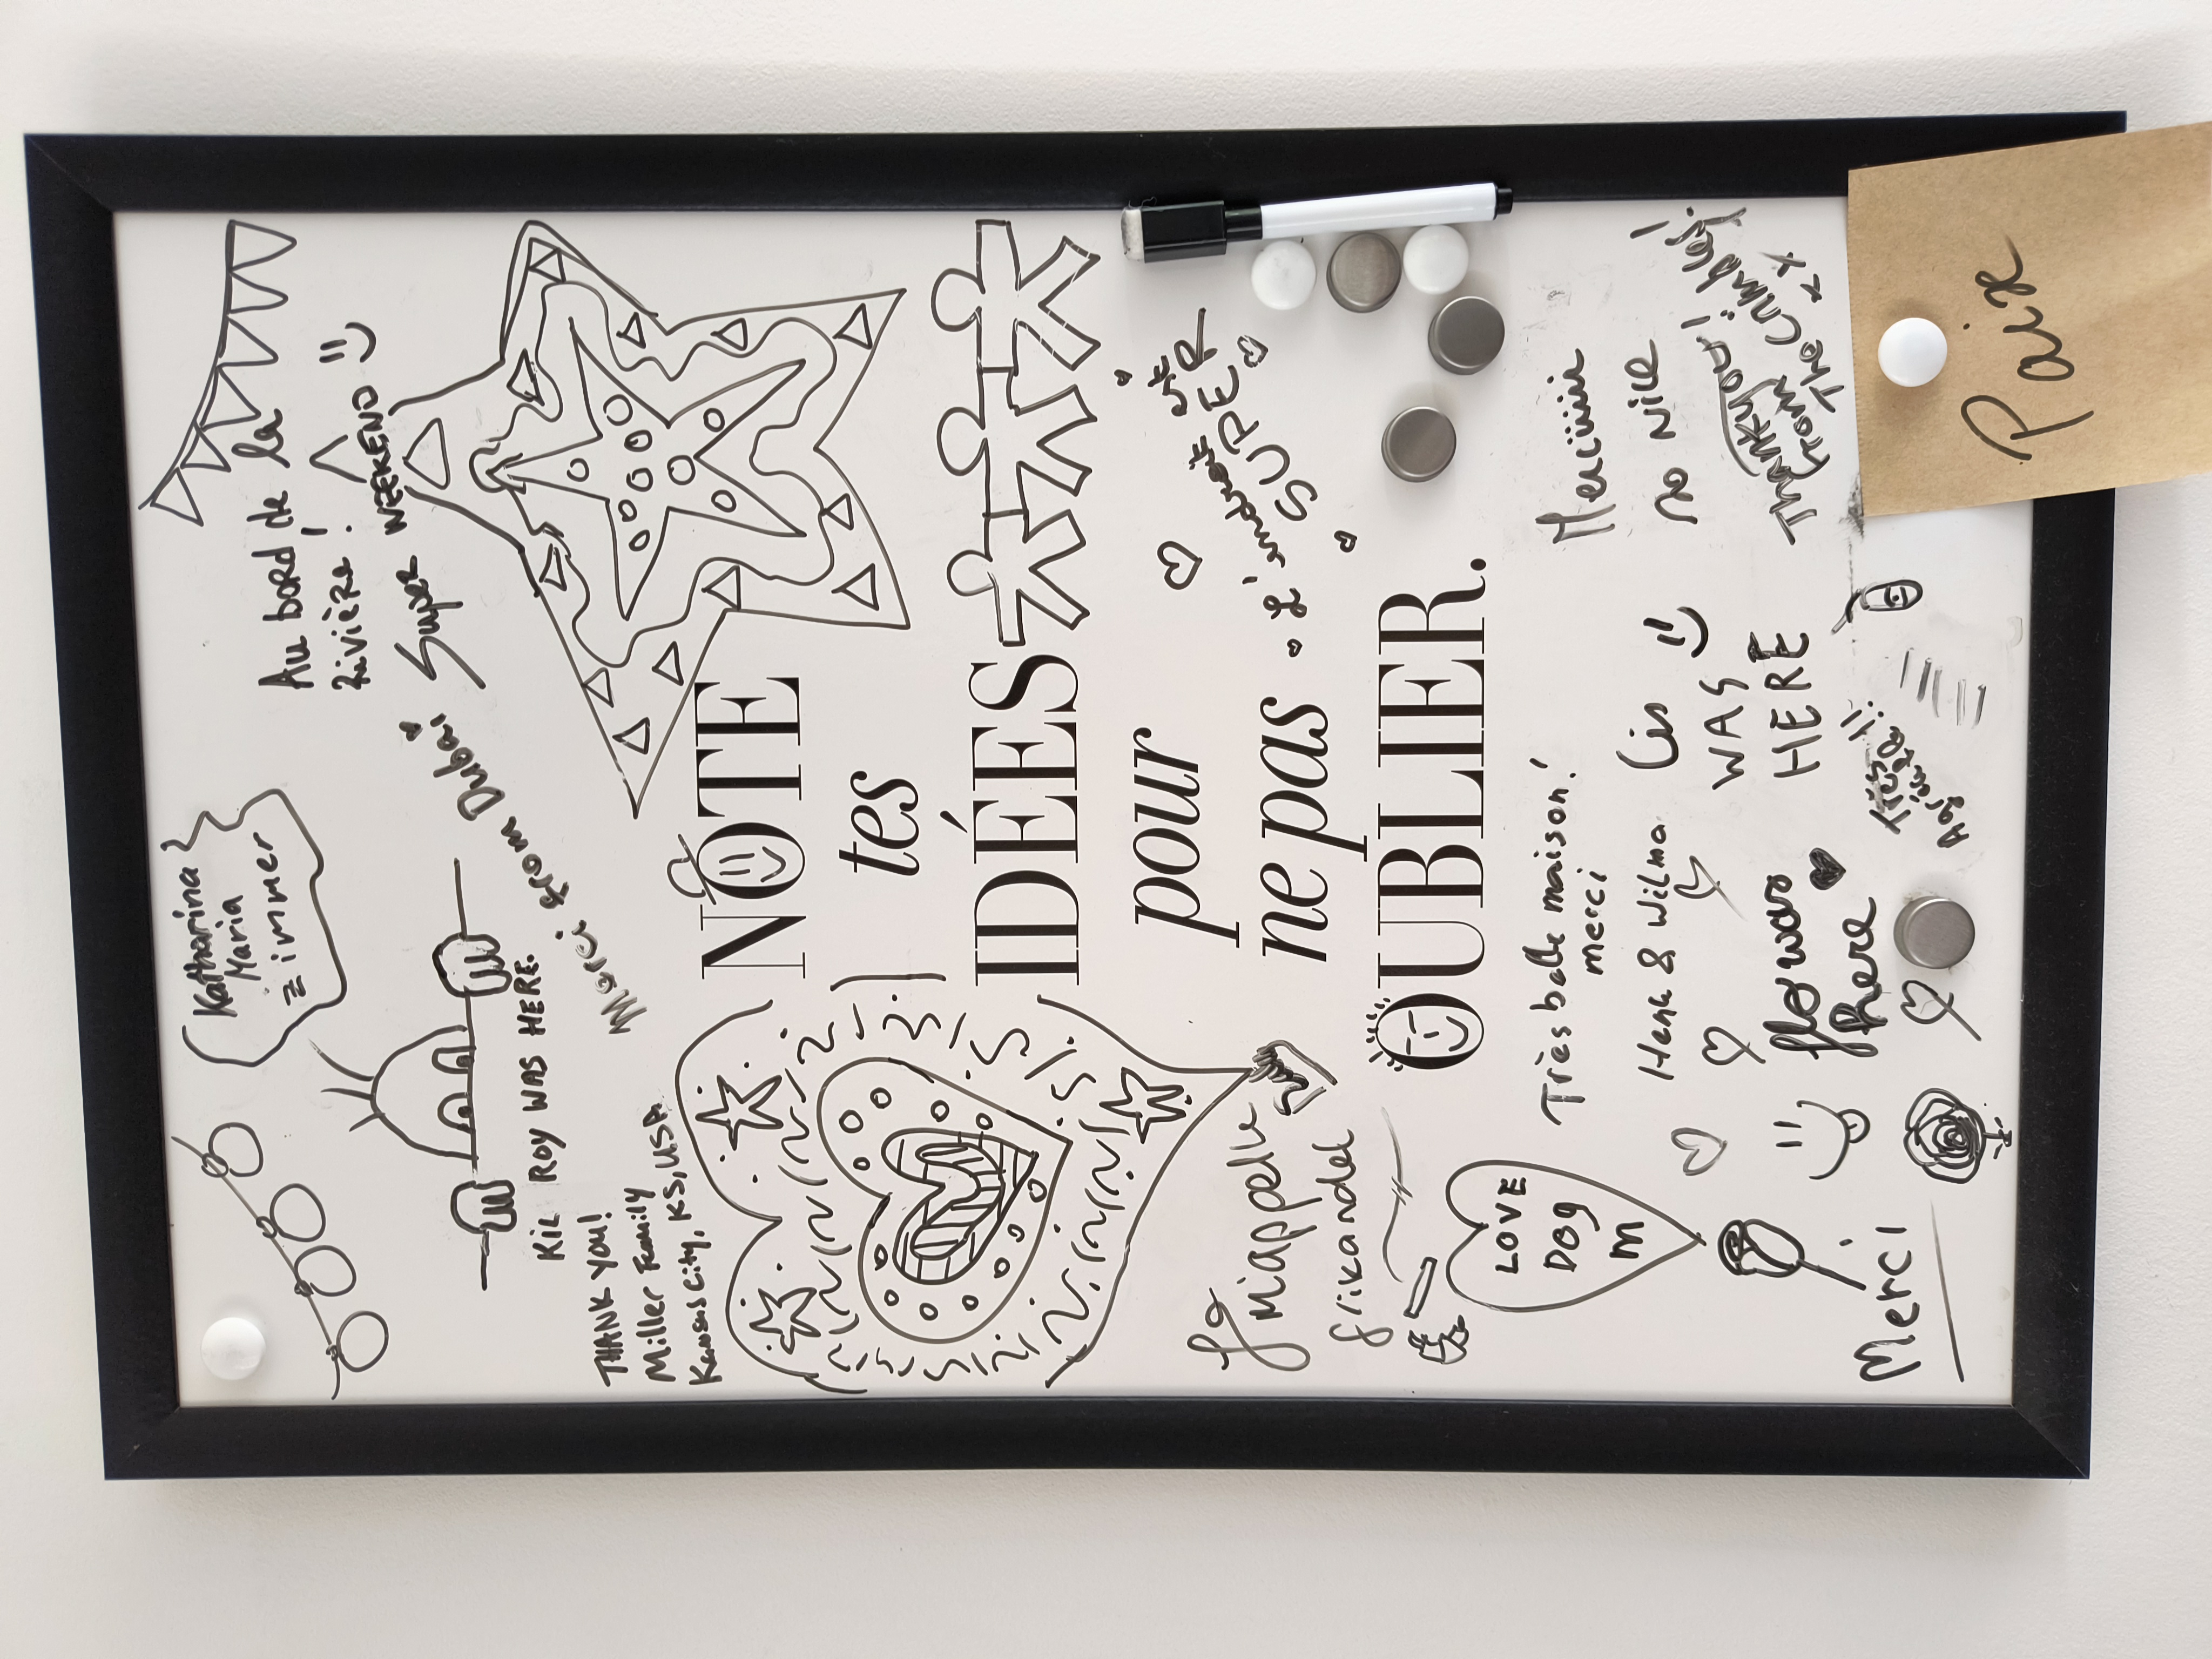 Katharina
Maria
Zimmer
Au bord de la
rivière !
Super WEEKEND
Merci from Dubai
KIL ROY WAS HERE.
THANK YOU!
Miller Family
Kansas City, KS, USA
NOTE
tes
IDÉES
pour
ne pas
OUBLIER.
L'endroit est
SUPER
Je m'appelle
frikandel
LOVE
DOG
M
Très belle maison!
merci
Henk & Wilma
flo was
here
Lis
WAS
HERE
Merciiiii
so nice
Thankyou!
From
The Crimbles!
xx
Très
Agréable!!
Merci
Paix